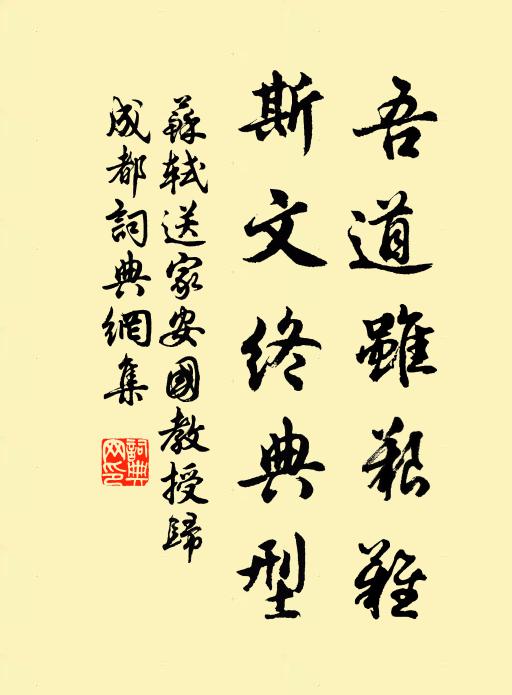 吾道雖艱難
斯文終典型
蘇軾送家安國教授歸
成都詞典網集
詞典網印